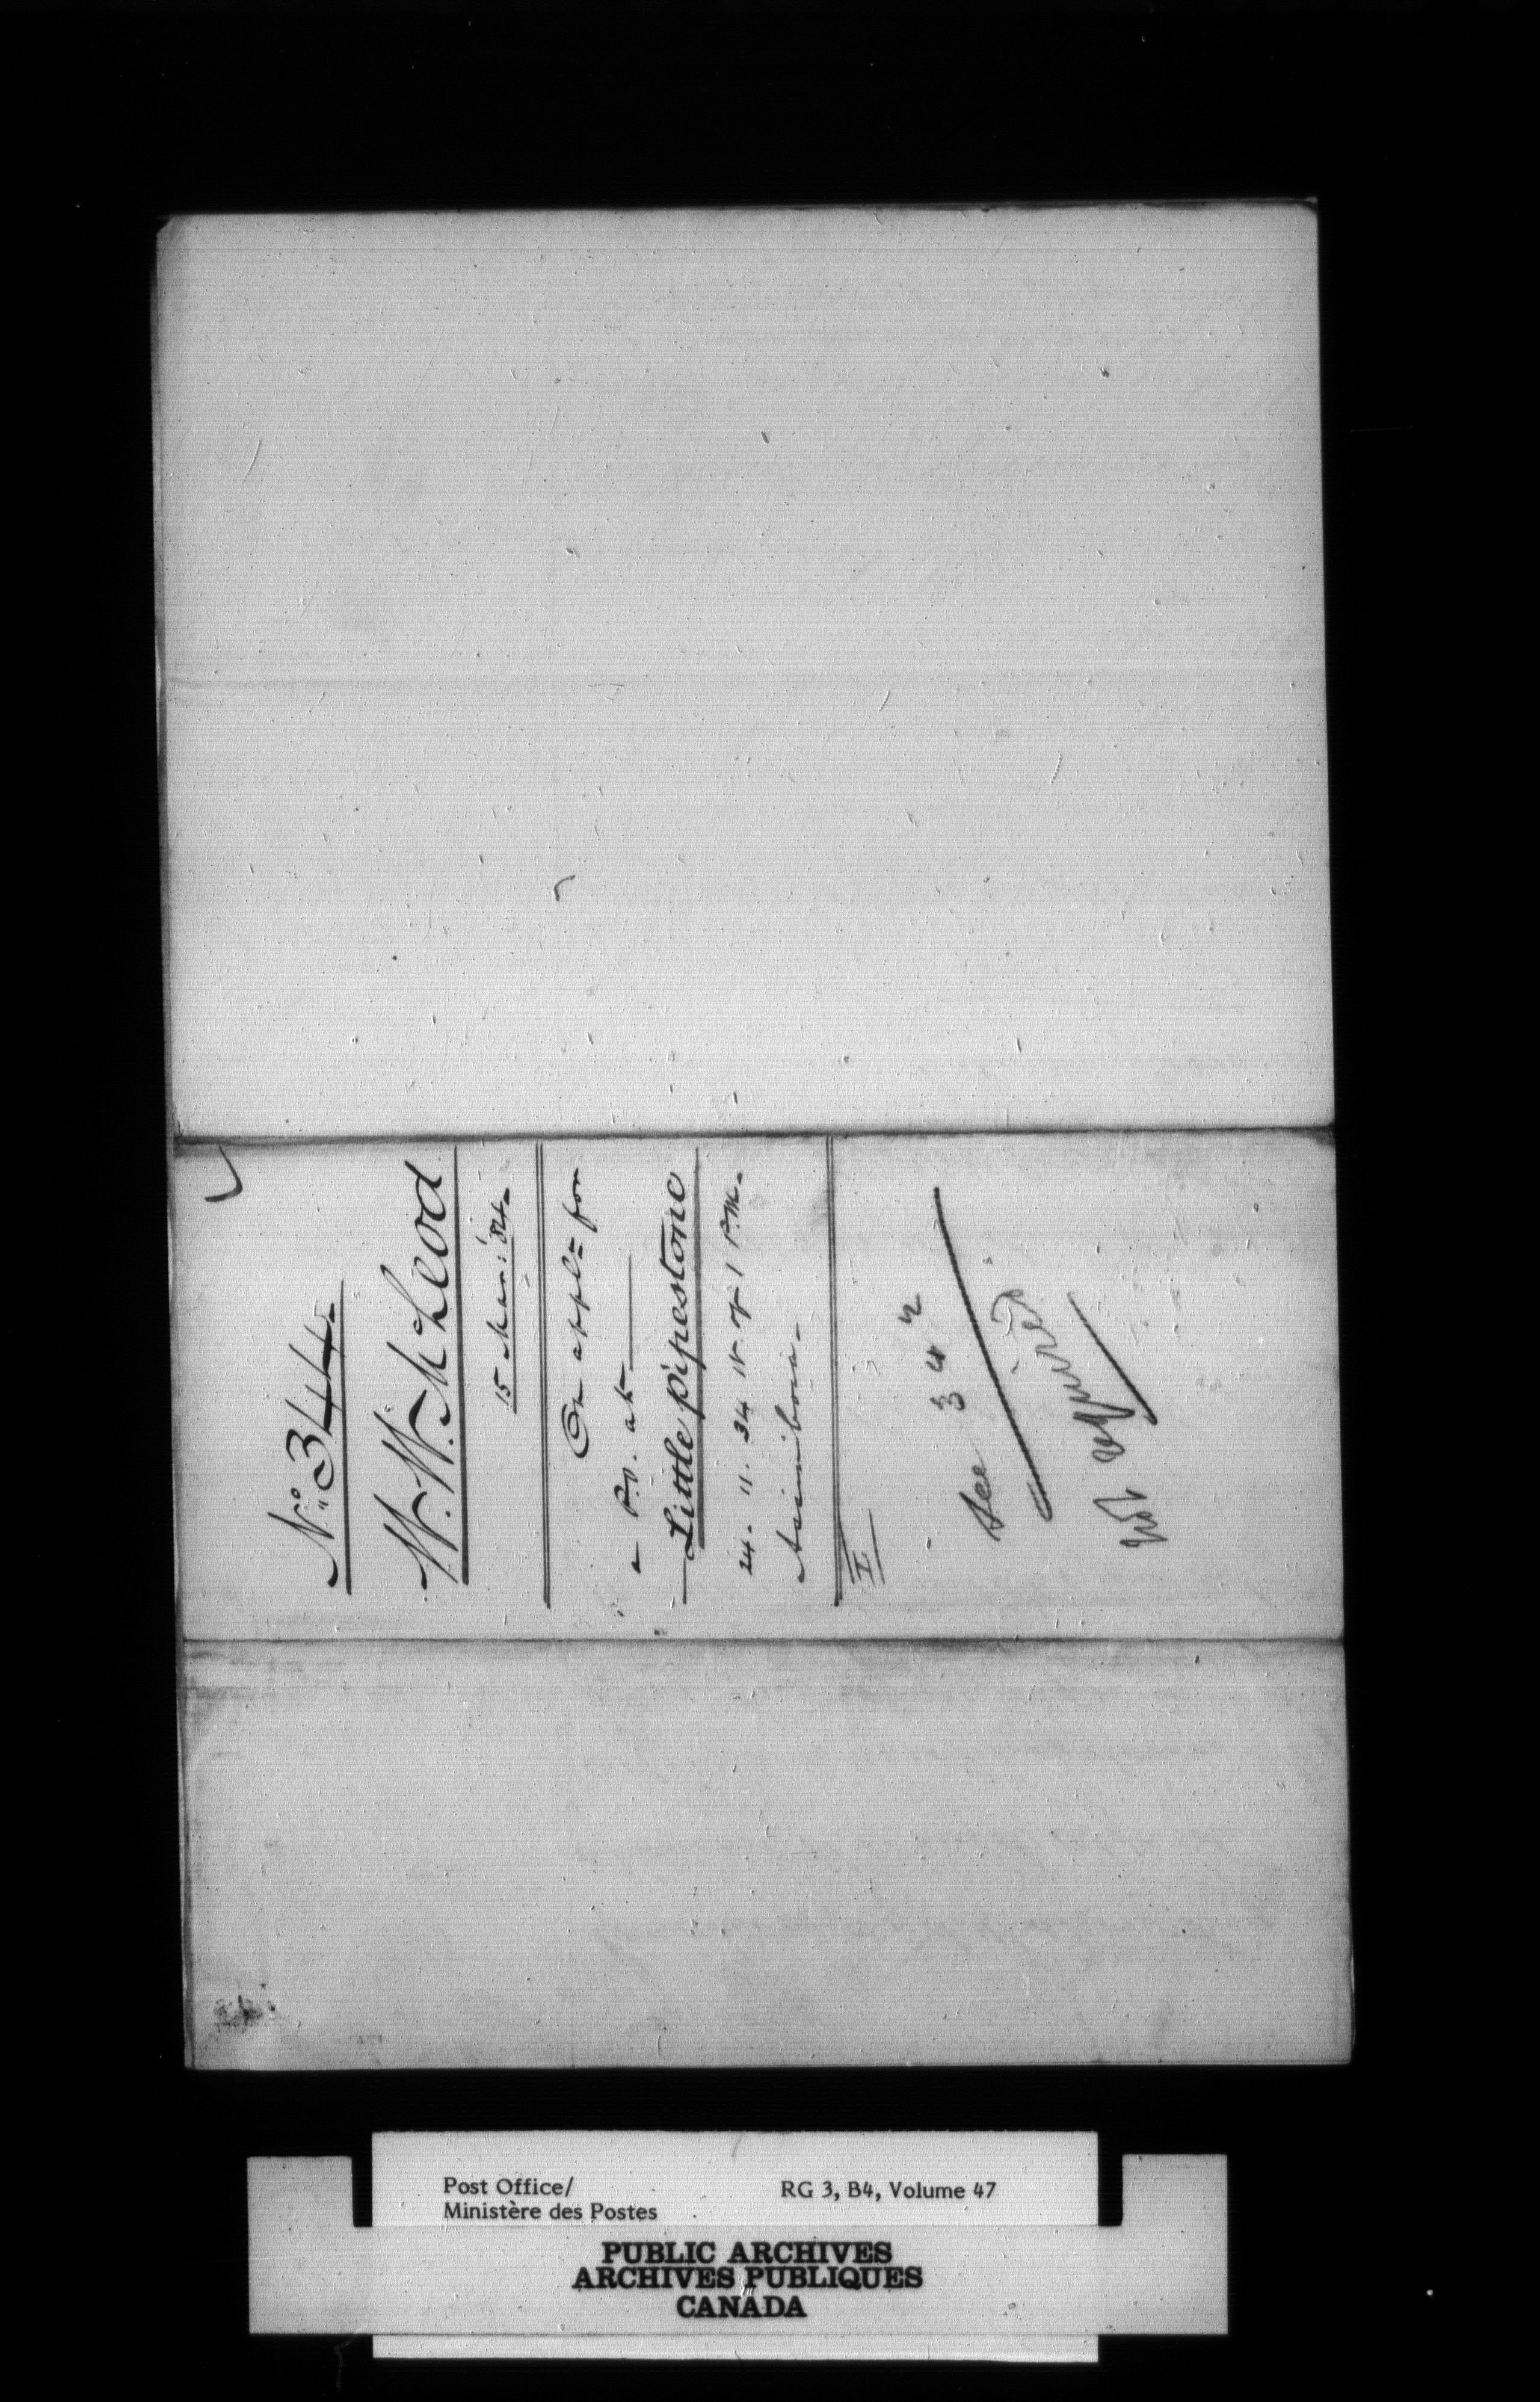 No. 344.
W. W. McLeod
15 Mar: '84.
On appln for
a P.O. at
Little Pipestone
24. 11. 34 W. of 1 P.M.
Assiniboia.
I
See 342
not required
Post Office/
Ministère des Postes
RG 3, B4, Volume 47
PUBLIC ARCHIVES
ARCHIVES PUBLIQUES
CANADA